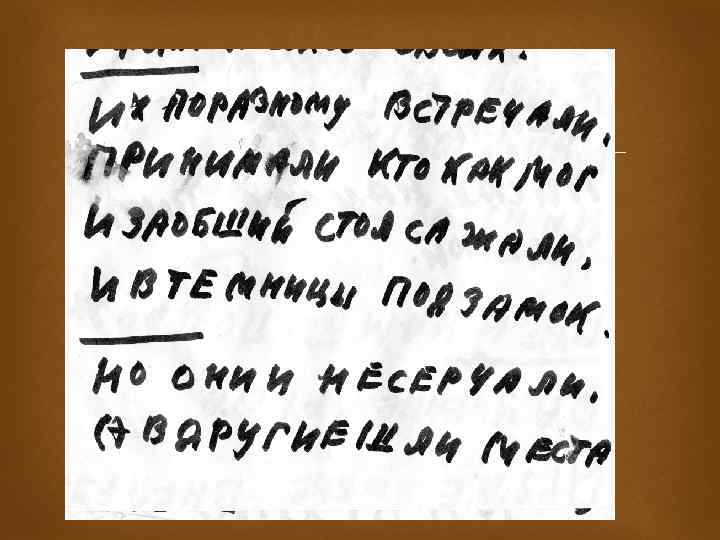 ИХ ПОРАЗНОМУ ВСТРЕЧАЛИ,
ПРИНИМАЛИ КТО КАК МОГ
И ЗАОБШИЙ СТОЛ САЖАЛИ,
И В ТЕМНИЦЫ ПОД ЗАМОК.
НО ОНИ И НЕСЕРЧАЛИ.
А В ДРУГИЕ ШЛИ МЕСТА